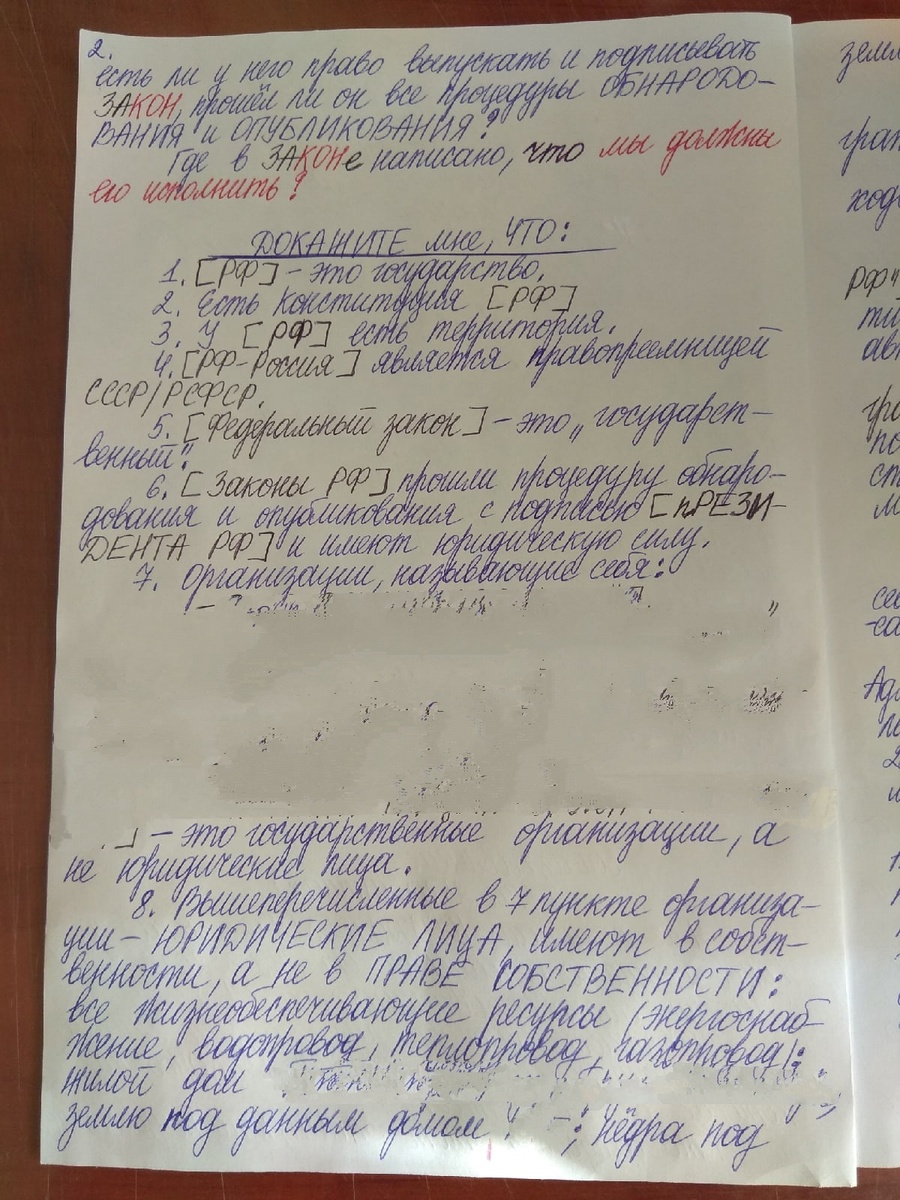 2.
есть ли у него право выпускать и подписывать
ЗАКОН, прошёл ли он все процедуры ОБНАРОДО-
ВАНИЯ и ОПУБЛИКОВАНИЯ?
Где в ЗАКОНе написано, что мы должны
его исполнить?
ДОКАЖИТЕ мне, ЧТО:
1. [РФ] - это государство.
2. Есть Конституция [РФ]
3. У [РФ] есть территория.
4. [РФ-Россия] является правопреемницей
СССР/РСФСР.
5. [Федеральный закон] - это „государст-
венный".
6. [Законы РФ] прошли процедуру обнаро-
дования и опубликования с подписью [пРЕЗИ-
ДЕНТА РФ] и имеют юридическую силу.
7. Организации, называющие себя:
] - это государственные организации, а
не юридические лица.
8. Вышеперечисленные в 7 пункте организа-
ции - ЮРИДИЧЕСКИЕ ЛИЦА, имеют в собст-
венности, а не в ПРАВЕ СОБСТВЕННОСТИ:
все жизнеобеспечивающие ресурсы (энергоснаб-
жение, водопровод, теплопровод, газопровод):
жилой дом
землю под данным домом ; Недра под
земл
гран
ходо
РФ"
ти
авт
гра
по
ст
м
се
-са
Ад
ле
2